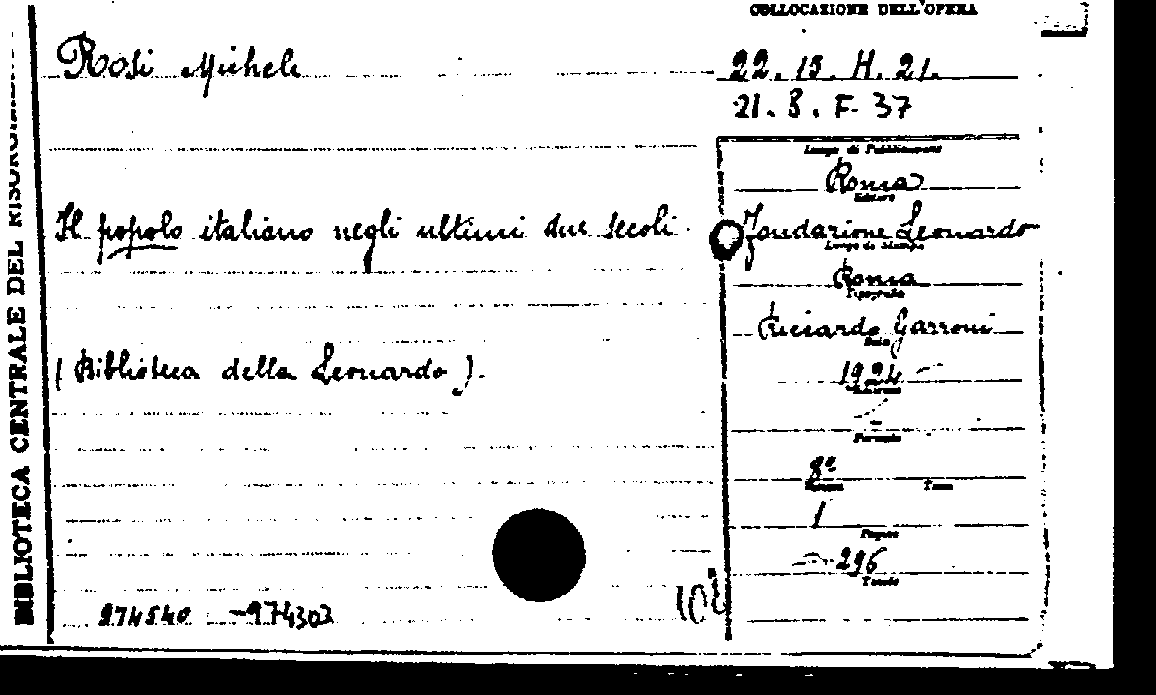 COLLOCAZIONE DELL'OPERA
Rosi Michele
22. 15. H. 21.
21. 8. F. 37
Luogo di Pubblicazione
Roma
Editore
Il popolo italiano negli ultimi due secoli.
Fondazione Leonardo
Luogo di Stampa
Roma
Tipografia
Riccardo Garroni
Data
(Biblioteca della Leonardo).
1924
Edizione
Formato
8º
Tomo
1
Pagine
296
Tavole
974540 - 974303
BIBLIOTECA CENTRALE DEL